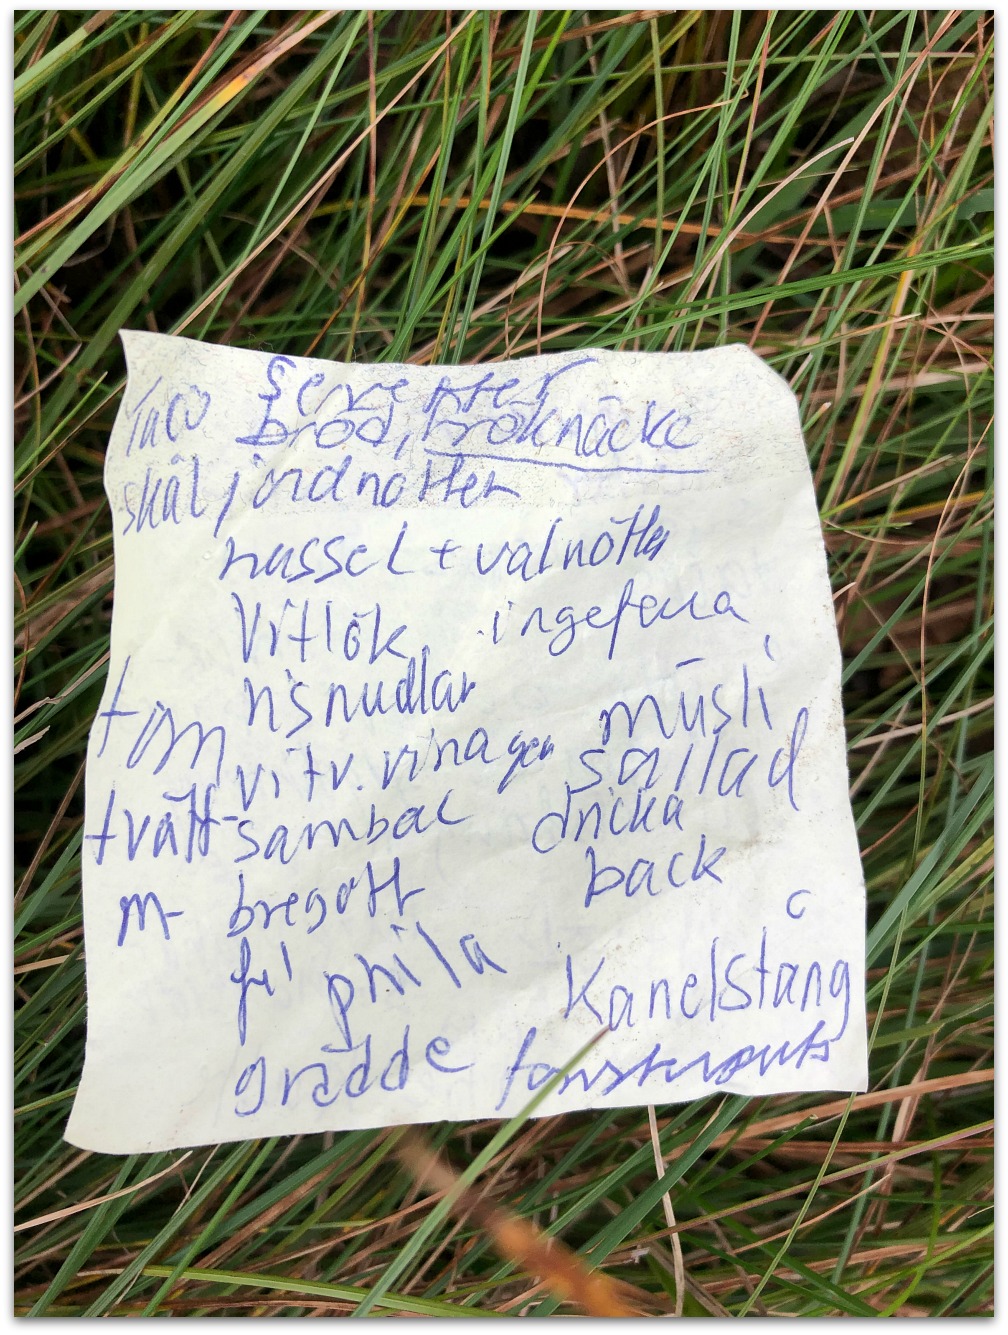 servetter
Taco bröd, bröknäcke
skål jordnötter
hassel + valnötter
Vitlök ingefära
tom risnudlar müsli
vitv. vinäger sallad
tvätt- sambal dricka
m bregott back
fil phila Kanelstång
grädde fönsterputs